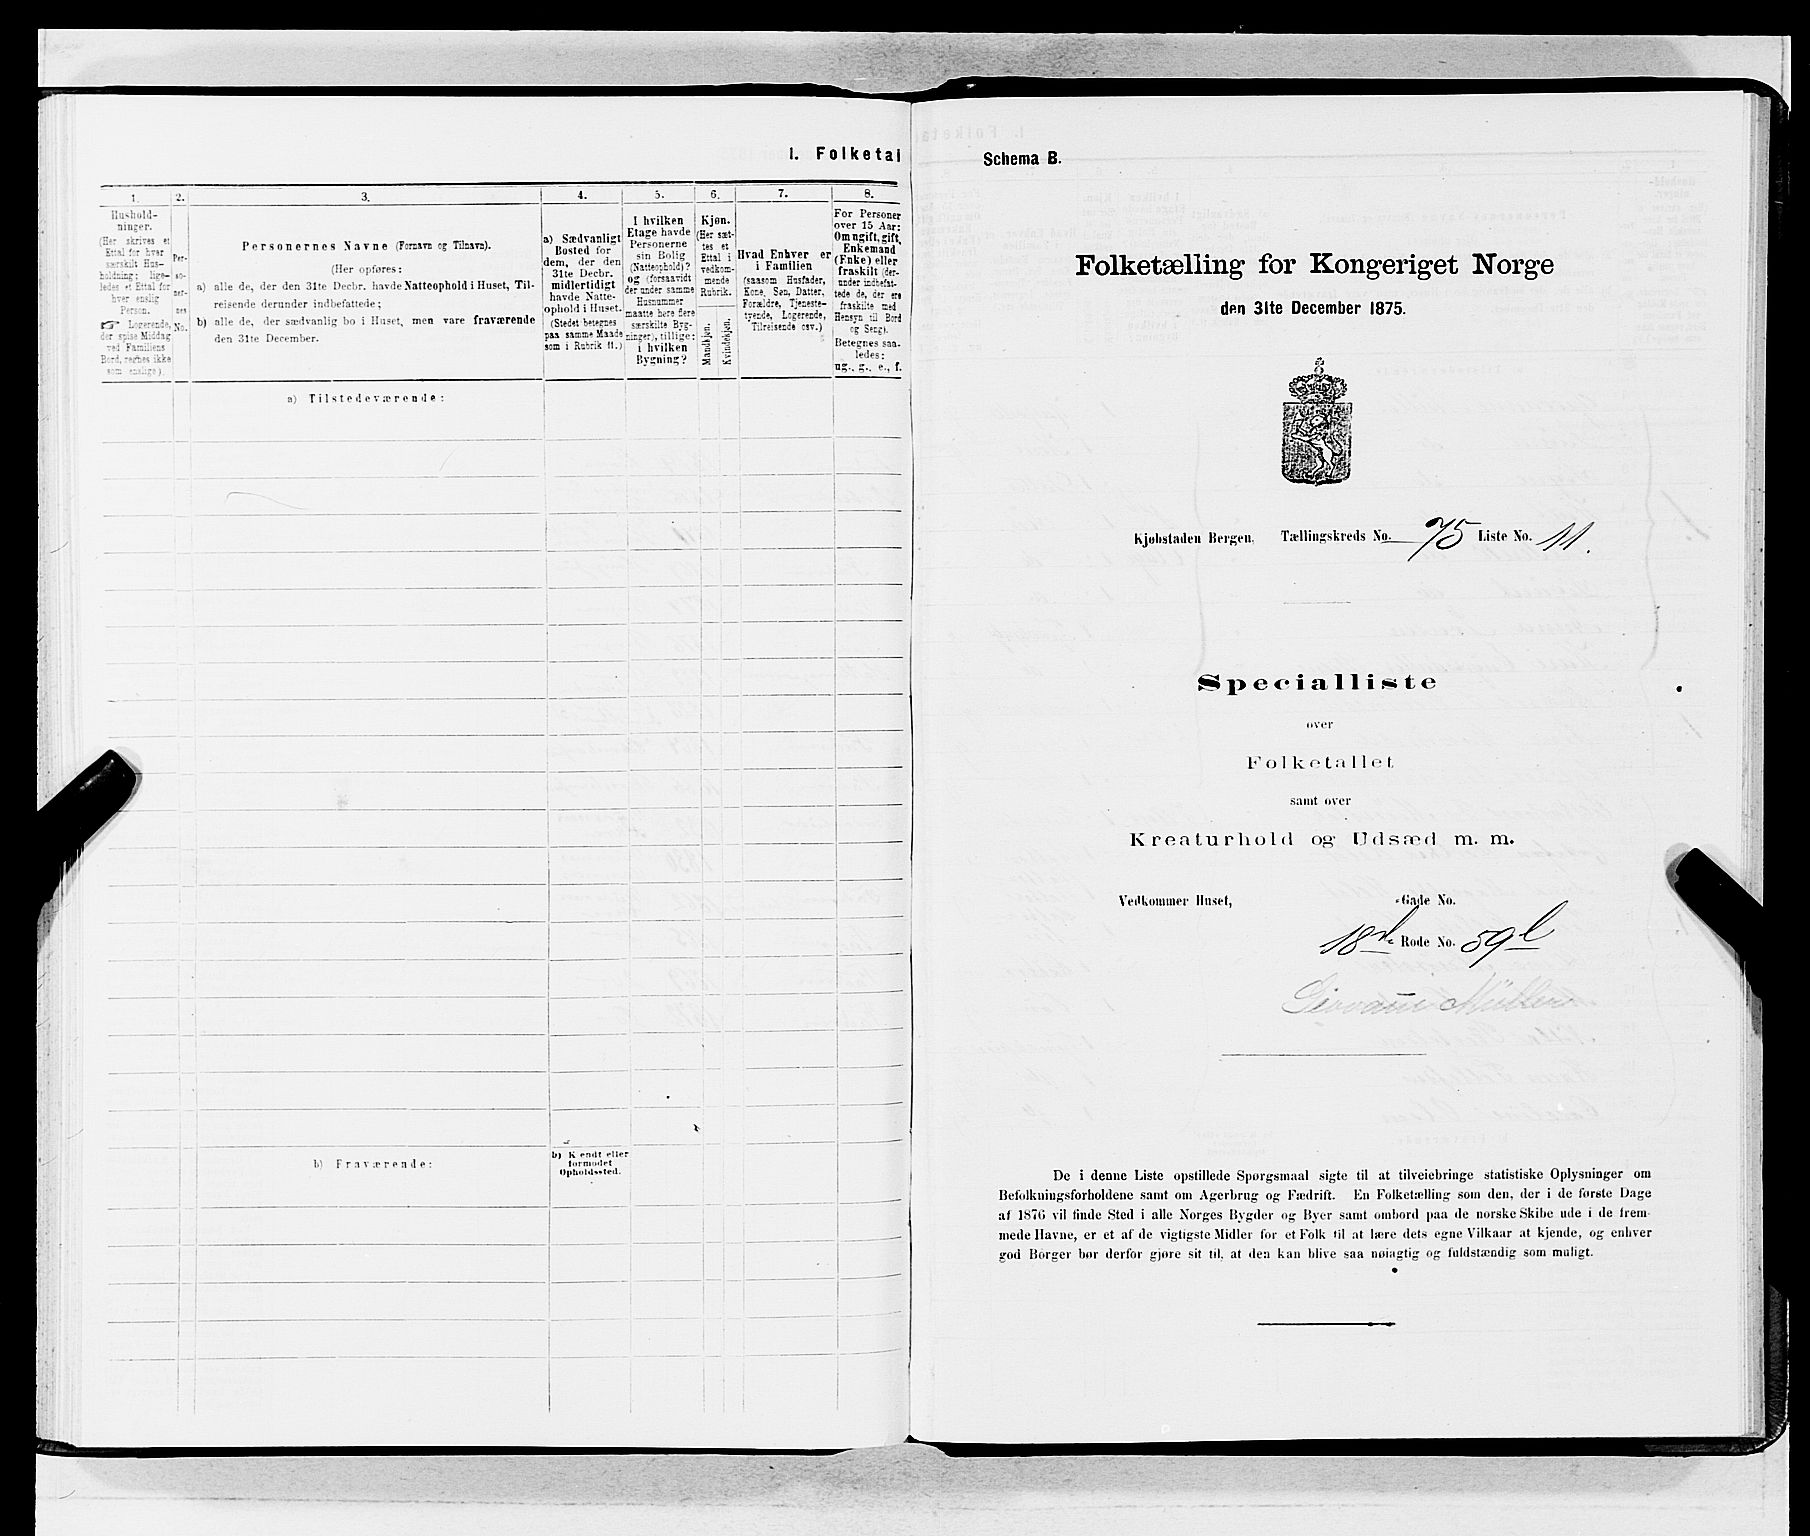 1. Folketal
1.
2.
3.
4.
5.
6.
7.
8.
Hushold-
ninger.
(Her skrives et
Ettal for hver
særskilt Hus-
holdning; lige-
ledes et Ettal for
hver enslig
Person.
☞ Logerende,
der spise Middag
ved Familiens
Bord, regnes ikke
som enslige).
Per-
so-
ner-
nes
No.
Personernes Navne (Fornavn og Tilnavn).
(Her opføres:
a) alle de, der den 31te Decbr. havde Natteophold i Huset, Til-
reisende derunder indbefattede;
b) alle de, der sædvanlig bo i Huset, men vare fraværende
den 31te December.
a) Sædvanligt
Bosted for
dem, der den
31te Decbr.
midlertidigt
havde Natte-
ophold i Huset.
(Stedet betegnes
paa samme Maade
som i Rubrik 11.)
I hvilken
Etage havde
Personerne
sin Bolig
(Natteophold)?
og (forsaavidt
der under samme
Husnummer
maatte høre flere
særskilte Byg-
ninger), tillige:
i hvilken
Bygning?
Kjøn.
(Her sæt-
tes et
Ettal i
vedkom-
mende
Rubrik.
Mandkjøn.
Kvindekjøn.
Hvad Enhver er
i Familien
(saasom Husfader,
Kone, Søn, Datter,
Forældre, Tjeneste-
tyende, Logerende,
Tilreisende osv.)
For Personer
over 15 Aar:
Om ugift, gift,
Enkemand
(Enke) eller
fraskilt (der-
under indbefat-
tede de, der ere
fraskilte med
Hensyn til Bord
og Seng).
Betegnes saa-
ledes:
ug., g., e., f.
a) Tilstedeværende:
b) Fraværende:
b) Kjendt eller
formodet
Opholdssted.
Schema B.
Folketælling for Kongeriget Norge
den 31te December 1875.
Kjøbstaden Bergen. Tællingskreds No. 75 Liste No. 11.
Specialliste
over
Folketallet
samt over
Kreaturhold og Udsæd m. m.
Vedkommer Huset, -Gade No.
18de Rode No. 59l
Müller
De i denne Liste opstillede Spørgsmaal sigte til at tilveiebringe statistiske Oplysninger om
Befolkningsforholdene samt om Agerbrug og Fædrift. En Folketælling som den, der i de første Dage
af 1876 vil finde Sted i alle Norges Bygder og Byer samt ombord paa de norske Skibe ude i de frem-
mede Havne, er et af de vigtigste Midler for et Folk til at lære dets egne Vilkaar at kjende, og enhver
god Borger bør derfor gjøre sit til, at den kan blive saa nøiagtig og fuldstændig som muligt.